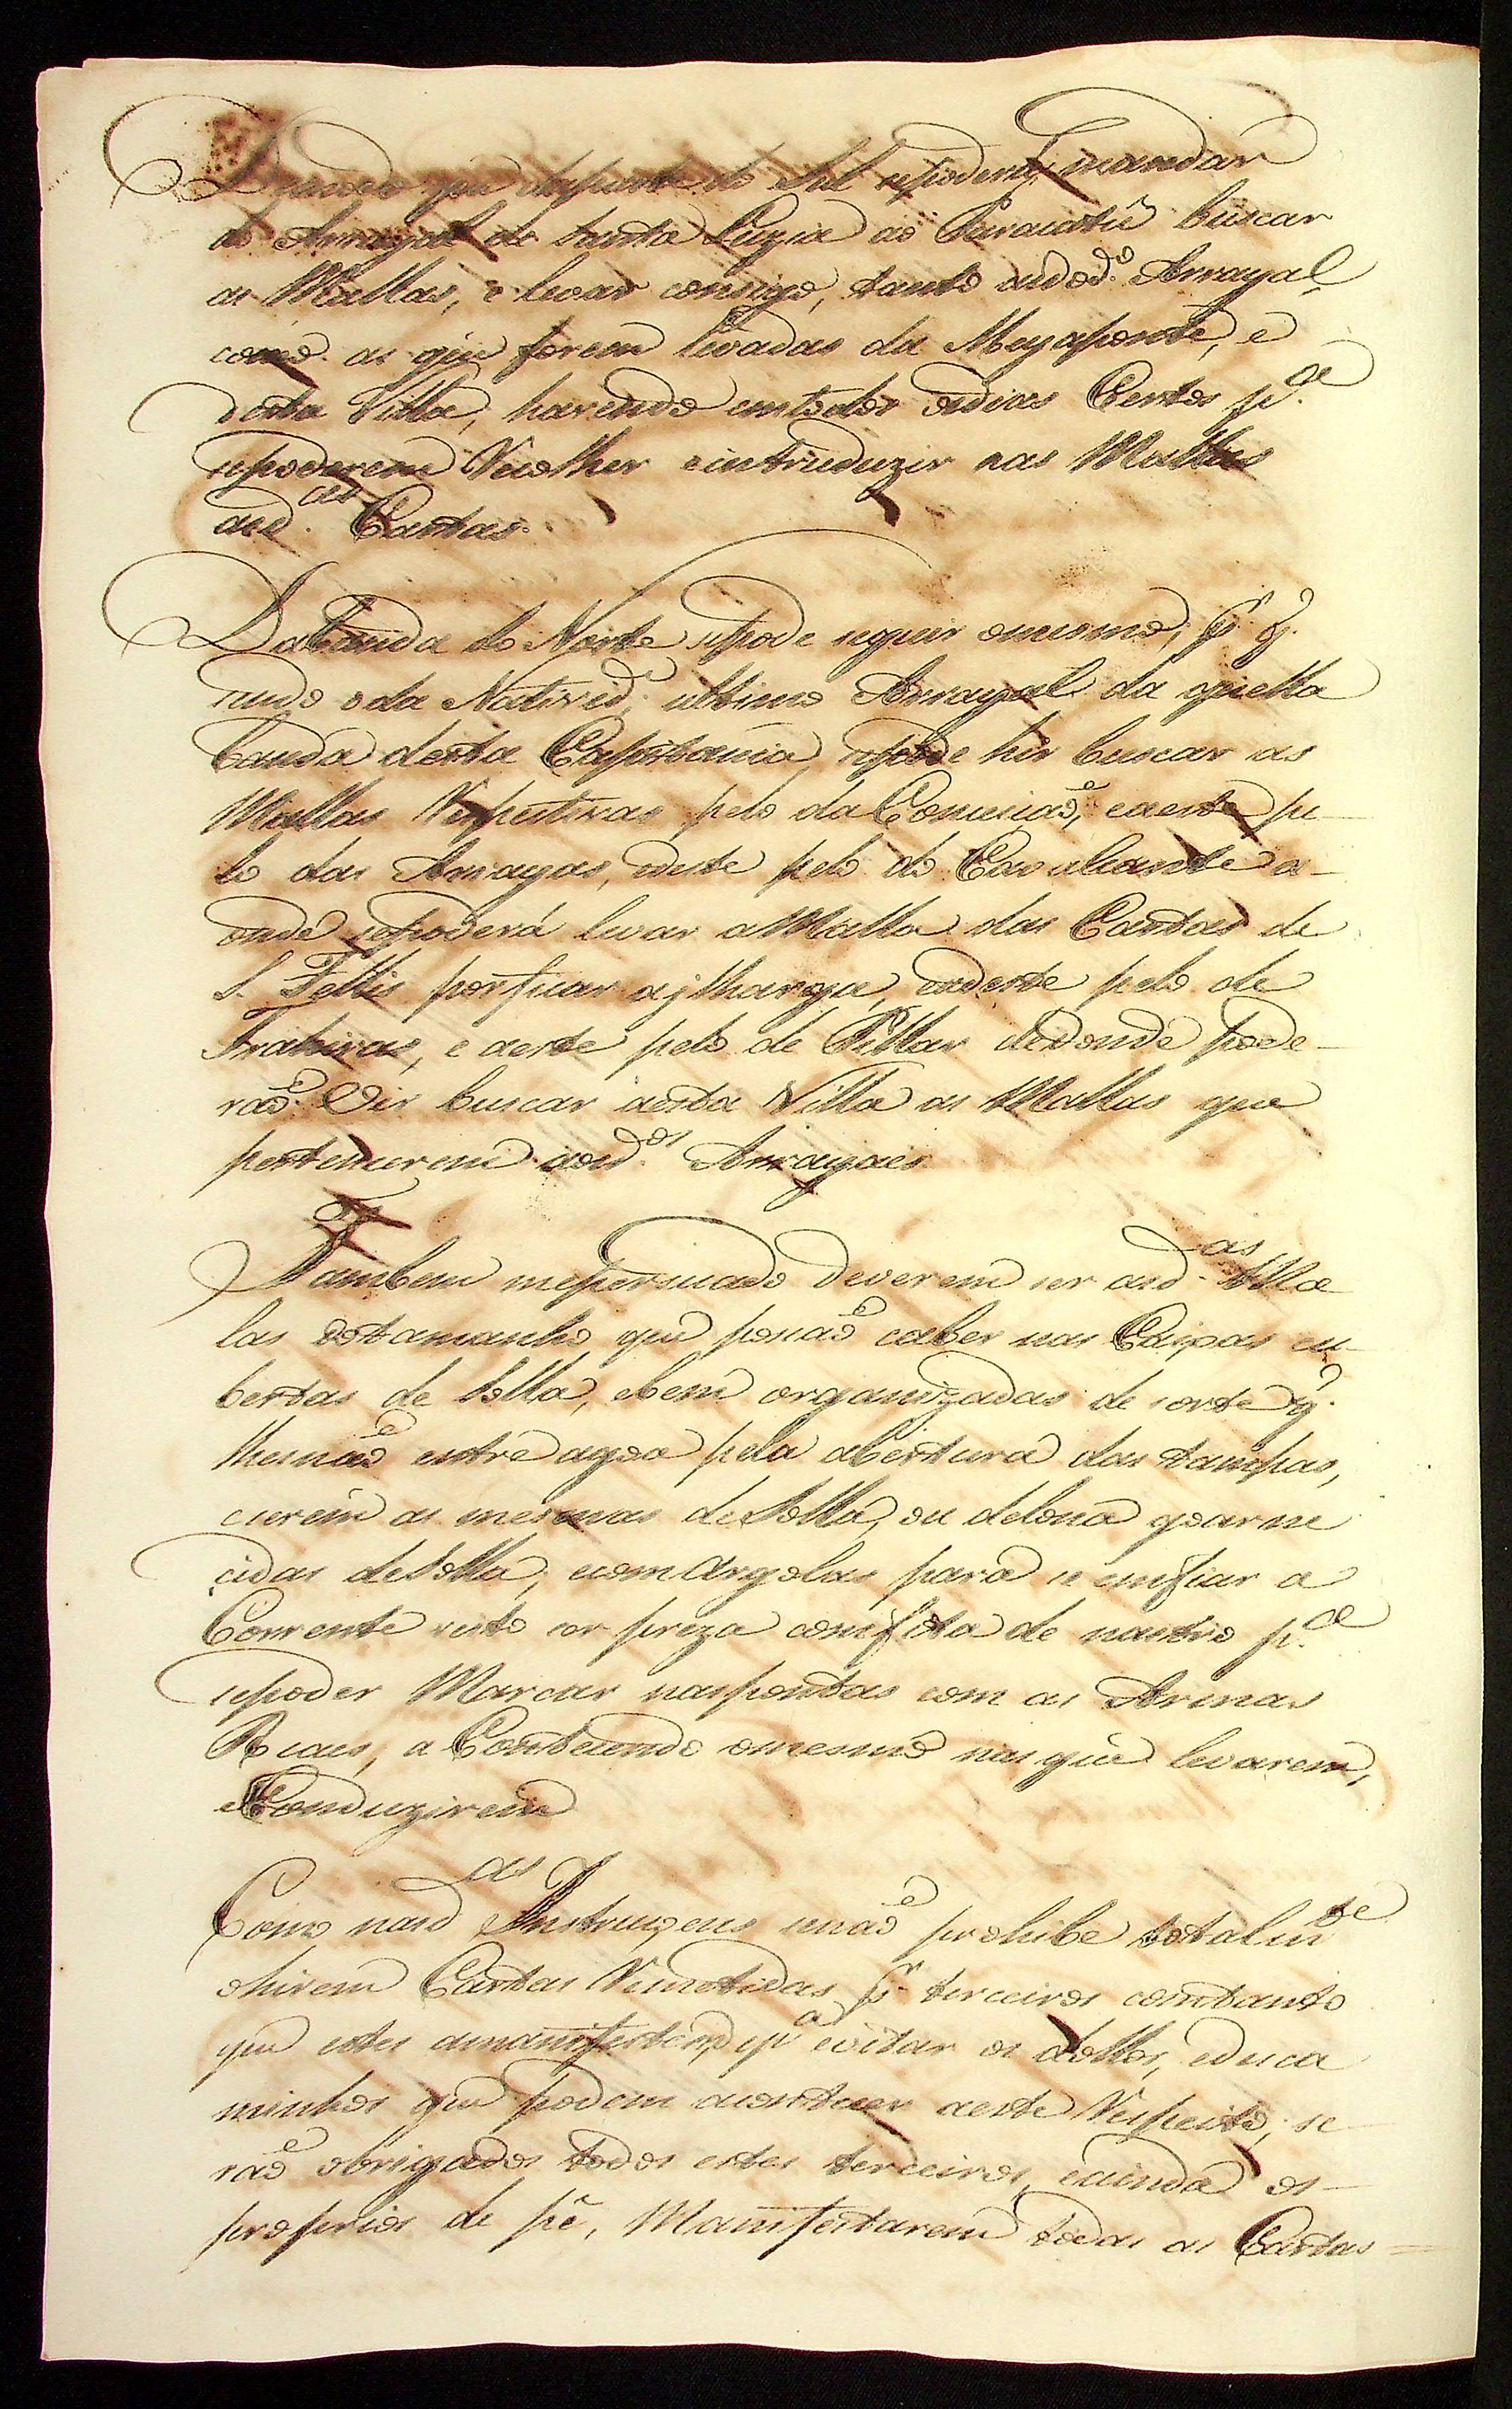 que daparte do Sul sepoderá mandar
do Arrayal de Santa Luzia ao Paracatú buscar
as Mallas, e levar consigo, tanto asdod.º Arrayal,
como as que forem levadas da Meyaponte, e
desta Villa, havendo emtodos osdias Certos p.ª
sepoderem Recolher eintruduzir nas Mallas
asd.as Cartas.
Dabanda do Norte sepode seguir omesmo, p.r q.
sendo oda Nativid.e ultimo Arrayal da quella
banda desta Capitania, sepode hir buscar as
Mallas Respectivas pelo da Conceição, eaeste pe-
lo das Arrayas, eeste pelo do Cavalcante a-
onde sepoderá levar aMalla das Cartas de
S. Fellis porficar ajlharga, eadeste pelo de
Trahiras, e aeste pelo de Pillar dedonde pode-
rão Vir buscar aesta Villa as Mallas que
pertencerem aosd.os Arrayaes
Tambem mepersuado deverem ser asd.as Ma
las dotamanho que possão caber nas Caixas cu-
bertas de Solla, ebem organizadas de sorte q.
lhesnão entre agoa pela abertura das tampas,
eserem as mesmas deSolla, ou delona goarne
cidas deSolla, ecom Argolas para se enfiar a
Corrente isto ser preza comfita de nastro p.ª
sepoder Marcar naspontas com as Armas
Reaes, a Contecendo omesmo nas que levarem,
eConduzirem
Como nasd.as Instruçoens senão prohibe totalm.te
ohirem Cartas Remetidas p.r terceiros comtanto
que estes asmanifestem, ep.ª evitar os dollos, edesca
minhos que podem acontecer aeste Respeito, se-
rão obrigados todos estes terceiros, eainda os-
proprios de pé, Manifestarem todas as Cartas